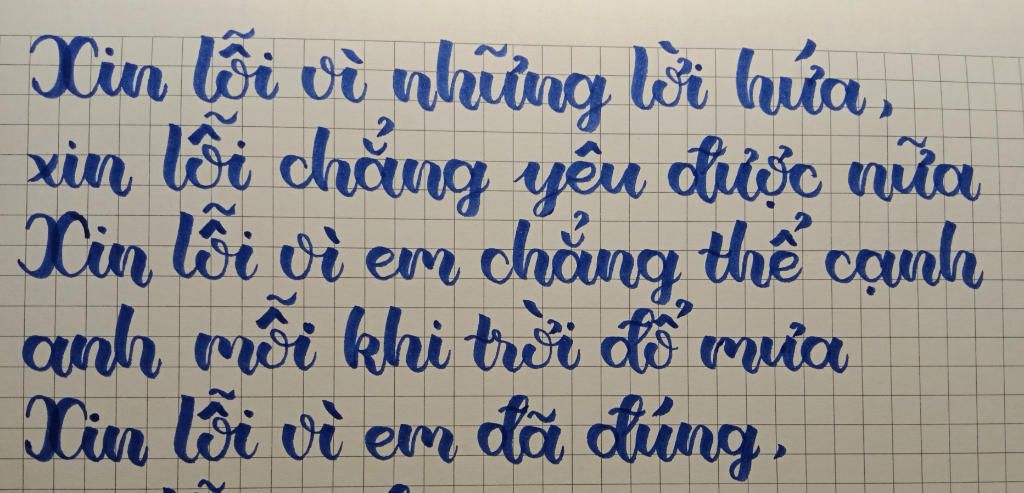 Xin lỗi vì những lời hứa,
xin lỗi chẳng yêu được nữa
Xin lỗi vì em chẳng thể cạnh
anh mỗi khi trời đổ mưa
Xin lỗi vì em đã đúng,